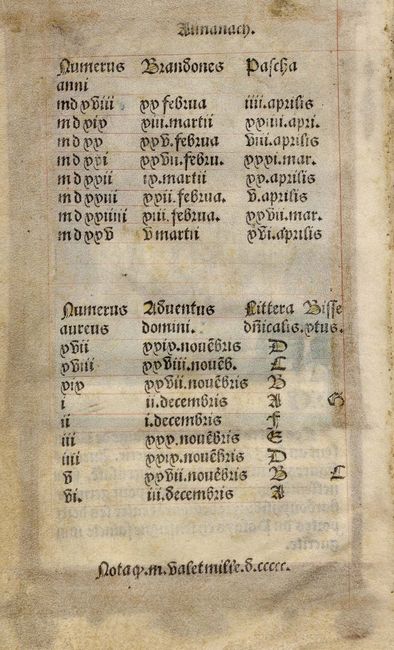 Almanach.
Numerus Brandones Pascha
anni
md xviii xx februa iiii.aprilis
md xix xiii.martii xxiiii.apri.
md xx xxv.februa viii.aprilis
md xxi xxvii.febru. xxxi.mar.
md xxii ix.martii xx.aprilis
md xxiii xxii.februa. v.aprilis
md xxiiii xiii.februa. xxvii.mar.
md xxv v martii xvi.aprilis
Numerus Adventus Littera Bisse
aureus domini. dñicalis.xtus.
xvii xxix.novẽbris D
xviii xxviii.novẽb. C
xix xxvii.novẽbris B
i ii.decembris A G
ii i.decembris F
iii xxx.novẽbris E
iiii xxix.novẽbris D
v xxvii.novẽbris B C
vi. iii.decembris A
Nota ꝙ.m.valet mille.d.ccccc.